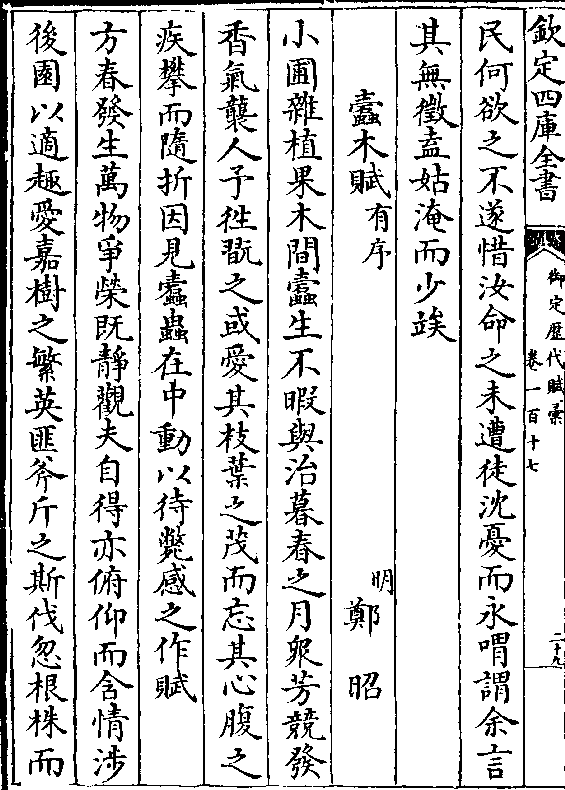 欽定四庫全書
御定歴代賦彙
卷一百十七
二十九
民何欲之不遂惜汝命之未遭徒沈憂而永喟謂余言
其無徵盍姑淹而少竢
蠹木賦有序
明鄭昭
小圃雜植果木間蠹生不暇與治暮春之月衆芳競發
香氣襲人予徃翫之或愛其枝葉之茂而忘其心腹之
疾攀而隨折因見蠹蟲在中動以待斃感之作賦
方春發生萬物爭榮既靜觀夫自得亦俯仰而含情涉
後園以適趣愛嘉樹之繁英匪斧斤之斯伐忽根株而